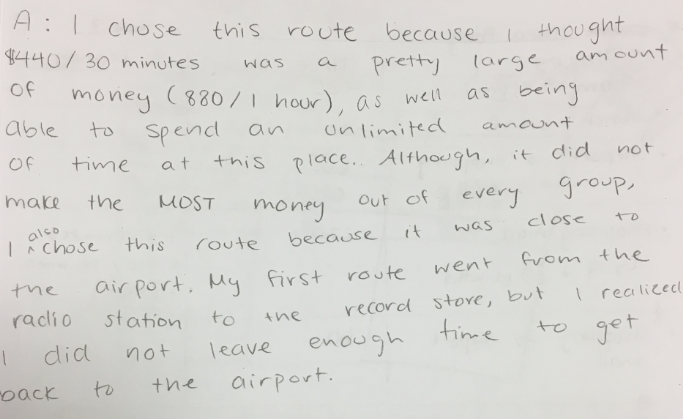 A: I chose this route because I thought
$440/30 minutes was a pretty large amount
of money (880/1 hour), as well as being
able to spend an unlimited amount
of time at this place. Although, it did not
make the MOST money out of every group,
I also chose this route because it was close to
the airport. My first route went from the
radio station to the record store, but I realized
I did not leave enough time to get
back to the airport.